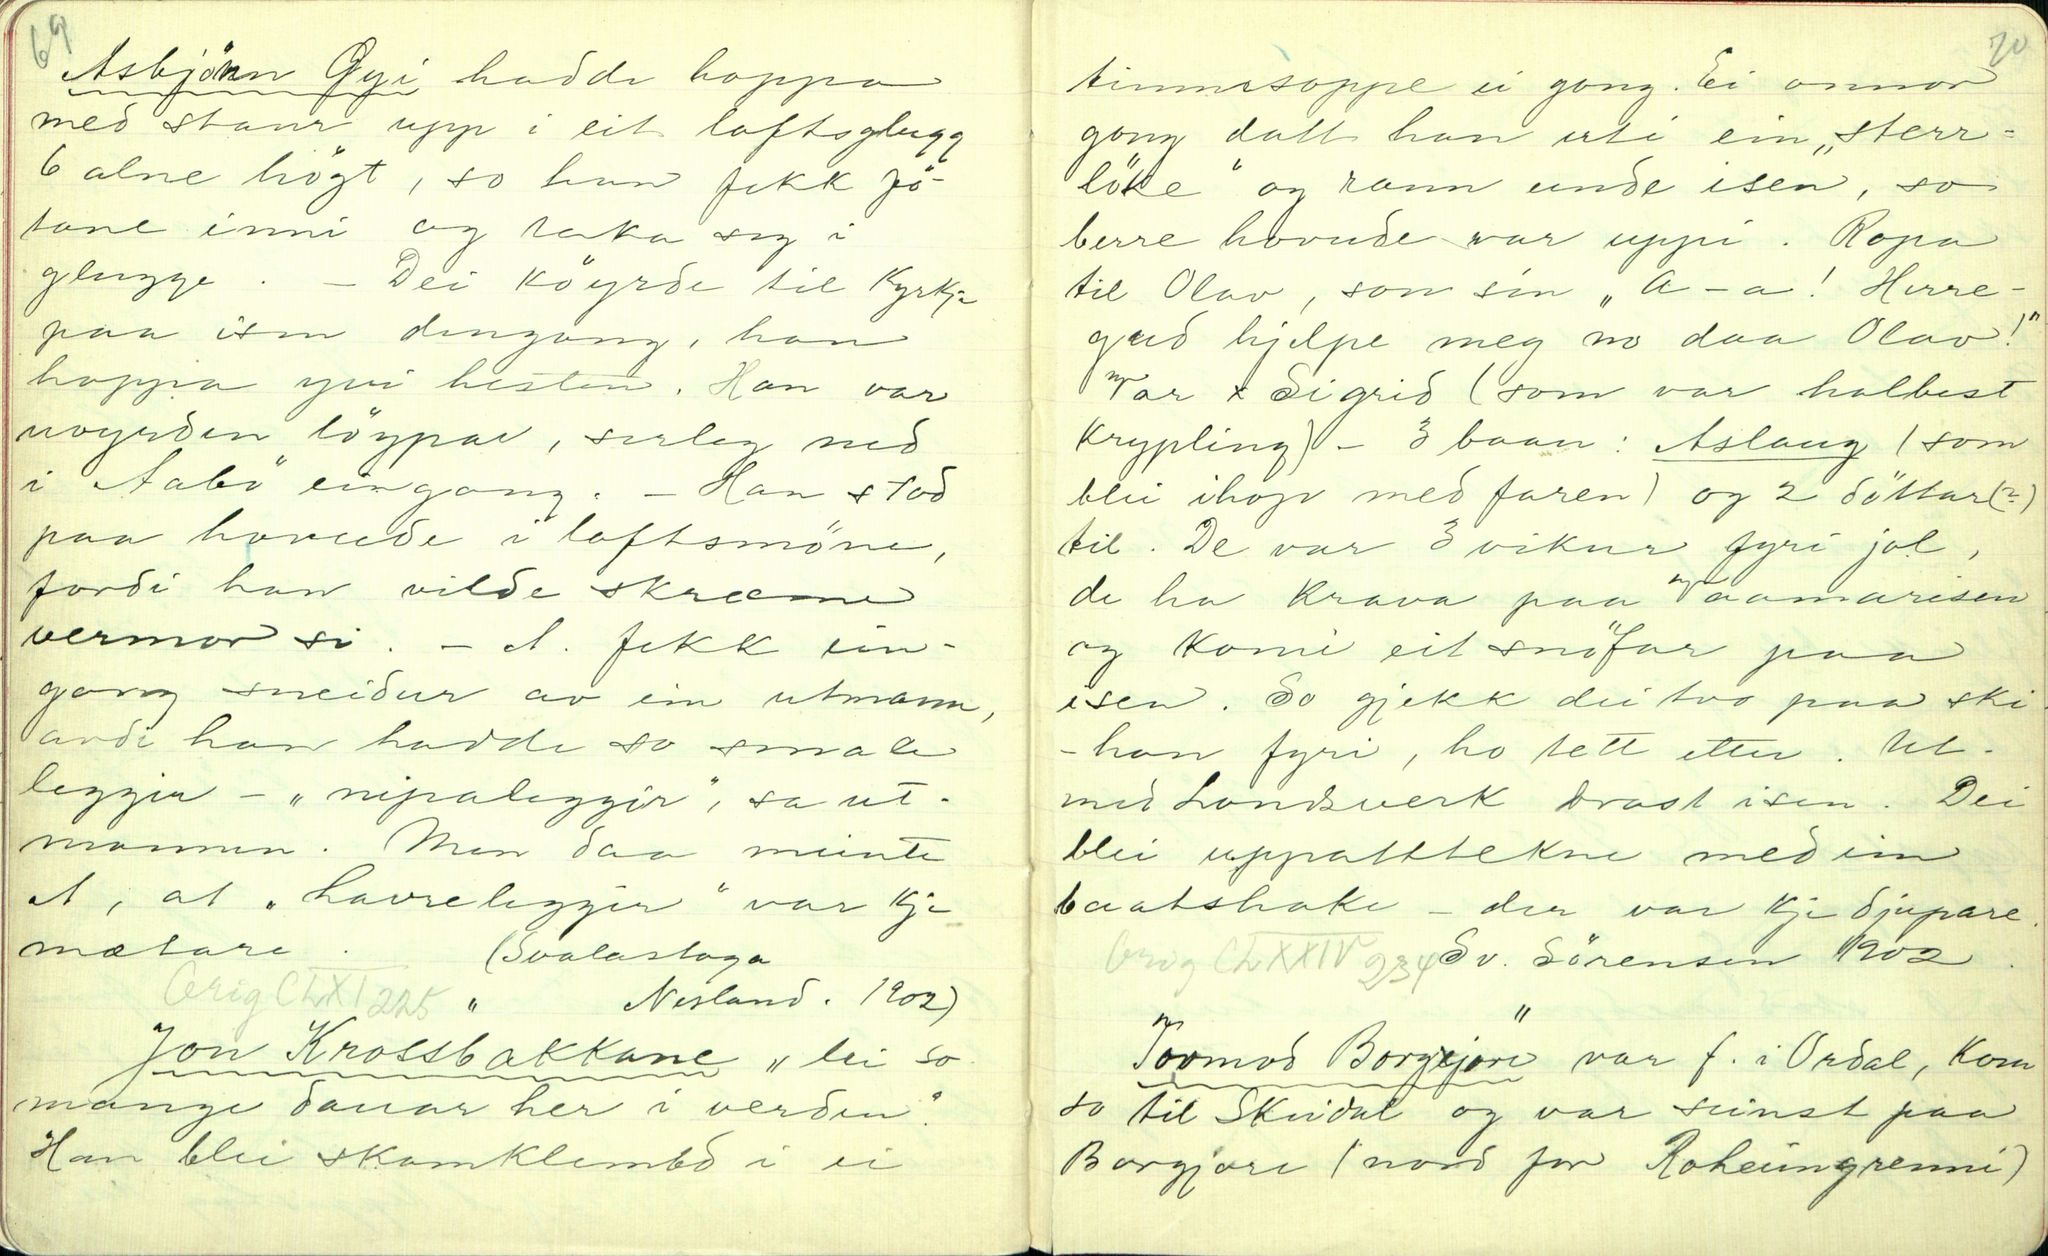 69
Asbjörn Öyi hadde hoppa
med staur upp i eit loftsglugg
6 alne högt, so han fekk fö-
tane inni og taka seg i
glugge. – Dei köyrde til Kyrkje
paa isen dengong, han
hoppa yvi hesten. Han var
uvyrden löypar, serleg ned
i Aabö eingong. – Han stod
paa hovude i loftsmöne,
fordi han vilde skræme
vermor si. – A. fekk ein-
gong sneidur av ein utmann,
avdi han hadde so smaae
leggjir – „nipaleggjir", sa ut-
mannen. Men daa meinte
A, at „havreleggjir" var kje
mætare. (Svalastoga
Orig CLXI 225 " Nesland. 1902)
Jon Krossbakkane „lei so
mange dauar her i verden".
Han blei skamklembd i ei
70
timmrsoppe ei gong. Ei annor
gong datt han uti ein „sterr-
löke" og rann unde isen, so
berre hovude var uppi. Ropa
til Olav, son sin „A – a! Herre-
gud hjelpe meg no daa Olav!"
Var x Sigrid (som var halbest
Krypling) – 3 baan: Aslaug (som
blei ihop med faren) og 2 döttar(?)
til. De var 3 vikur fyri jol,
de ha Krava paa Vaamarisen
og komi eit snöfar paa
isen. So gjekk dei tvo paa ski
– han fyri, ho tett etter. Ut-
med Londsverk brast isen. Dei
blei uppatttekne med ein
baatshake – der var kje djupare.
Orig CLXXIV 234 Sv. Sörensen 1902.
"
Tormod Borgjore var f. i Ordal, kom
so til Skeidal og var seinst paa
Borgjore (nord for Roheimgrenni)